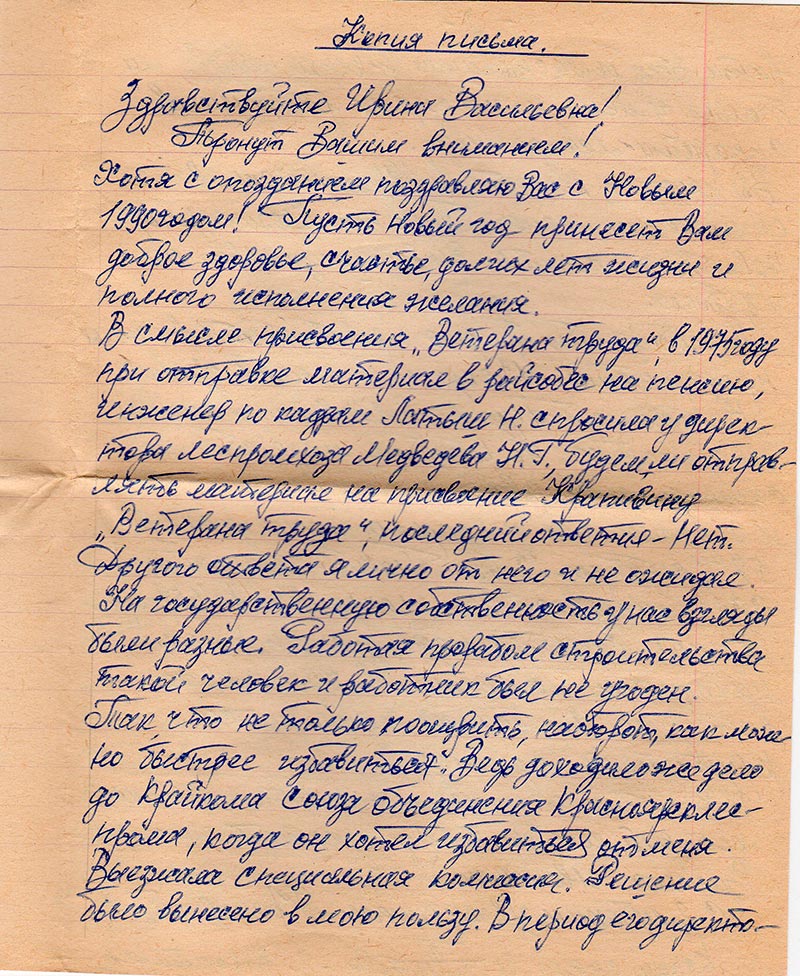 Копия письма.
Здравствуйте Ирина Васильевна!
Тронут Вашим вниманием!
Хотя с опозданием поздравляю Вас с Новым
1990 годом! Пусть новый год принесет Вам
доброе здоровье, счастье, долгих лет жизни и
полного исполнения желания.
В смысле присвоения „Ветерана труда“, в 1975 году
при отправке материал в райсобес на пенсию,
инженер по кадрам Латыш Н. спросила у дирек-
тора леспромхоза Медведева Н.Г., будем ли отправ-
лять материал на присвоение Крапивину
„Ветерана труда“, последний ответил – Нет.
Другого ответа я лично от него и не ожидал.
На государственную собственность у нас взгляды
были разные. Работая прорабом строительства
такой человек и работник был не угоден.
Так, что не только поощрить, наоборот, как мож-
но быстрее избавиться. Ведь доходило же дело
до Крайкома союза объединения Красноярсклес-
прома, когда он хотел избавиться от меня.
Выезжала специальная комиссия. Решение
было вынесено в мою пользу. В период его директо-